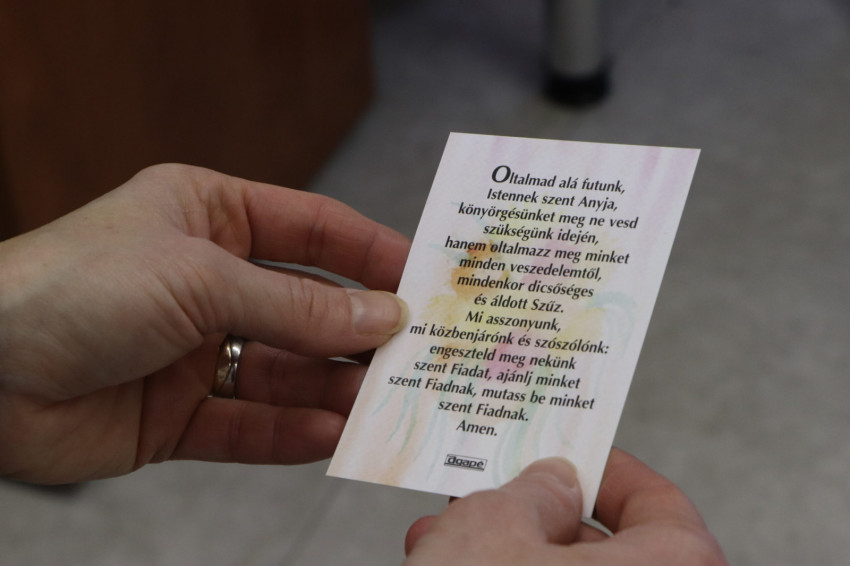 Oltalmad alá futunk,
Istennek szent Anyja,
könyörgésünket meg ne vesd
szükségünk idején,
hanem oltalmazz meg minket
minden veszedelemtől,
mindenkor dicsőséges
és áldott Szűz.
Mi asszonyunk,
mi közbenjárónk és szószólónk:
engeszteld meg nekünk
szent Fiadat, ajánlj minket
szent Fiadnak, mutass be minket
szent Fiadnak.
Amen.
agapé